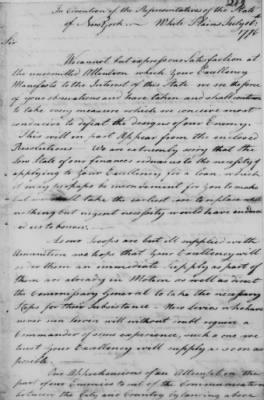 In Convention of the Representatives of the State
of New York White Plains July 10th
1776
Sir
We cannot but express our Satisfaction at
the unremitted Attention which Your Excellency
Manifests to the Interest of this State we see the force
of your observations and have taken and shall continue
to take every measure which we conceive most
conducive to defeat the designs of our Enemy.
This will in part Appear from the enclosed
Resolutions We are extremely sorry that the
low State of our finances reduces us to the necessity of
applying to Your Excellency for a loan which
it may perhaps be inconvenient for You to make
but we shall take the earliest care to replace as
nothing but urgent necessity would have induced
us to borrow.
As our Troops are but ill supplied with
Amunition we hope that Your Excellency will
order them an immediate Supply as part of
them are already in Motion as well as direct
the Commissary General to take the necessary
Steps for their Subsistance. New Levies who have
never seen Service will without doubt require a
Commander of some experience, such a one we
trust Your Excellency will supply as soon as
possible.
Our Apprehensions of an Attempt on the
part of our Enemies to cut of the Communication
between the City and Country by landing above